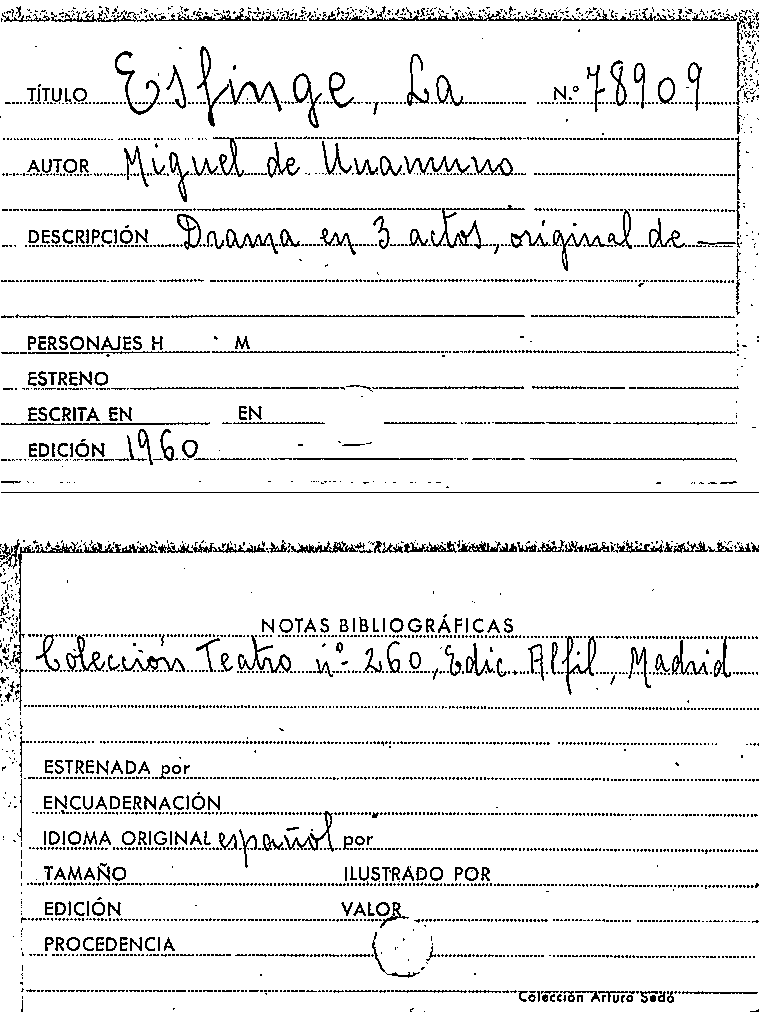 TÍTULO Esfinge, La N.º 78909
AUTOR Miguel de Unamuno
DESCRIPCIÓN Drama en 3 actos, original de —
PERSONAJES H M
ESTRENO
ESCRITA EN EN
EDICIÓN 1960
NOTAS BIBLIOGRÁFICAS
Colección Teatro nº 260, Edic. Alfil, Madrid
ESTRENADA por
ENCUADERNACIÓN
IDIOMA ORIGINAL español por
TAMAÑO ILUSTRADO POR
EDICIÓN VALOR
PROCEDENCIA
Colección Arturo Sedó